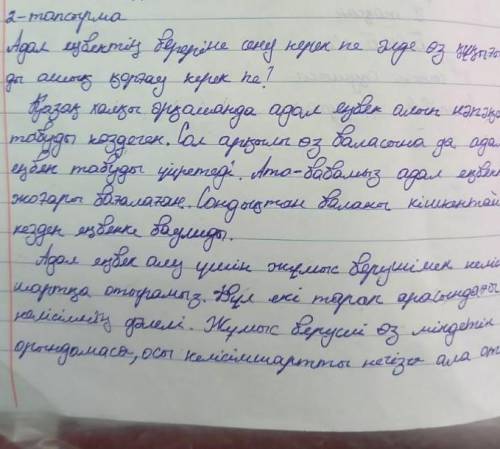 2-тапсырма
Адал еңбектің бергеріне сену керек пе әлде өз құқығы
ды ашық қорғау керек пе?
Қазақ халқы әрқашанда адал еңбек алып нәпақа
табуды көздеген. Сол арқылы өз баласына да адал
еңбек табуды үйретеді. Ата-бабамыз адал еңбек
жоғары бағалаған. Сондықтан баланы кішкентай
кезден еңбекке баулиды.
Адал еңбек алу үшін жұмыс берушімек келіс
шартқа отырамыз. Бұл екі тарап арасындағы
келісімнің дәлелі. Жұмыс беруші өз міндетін
орындамаса, осы келісімшартты негізге ала от